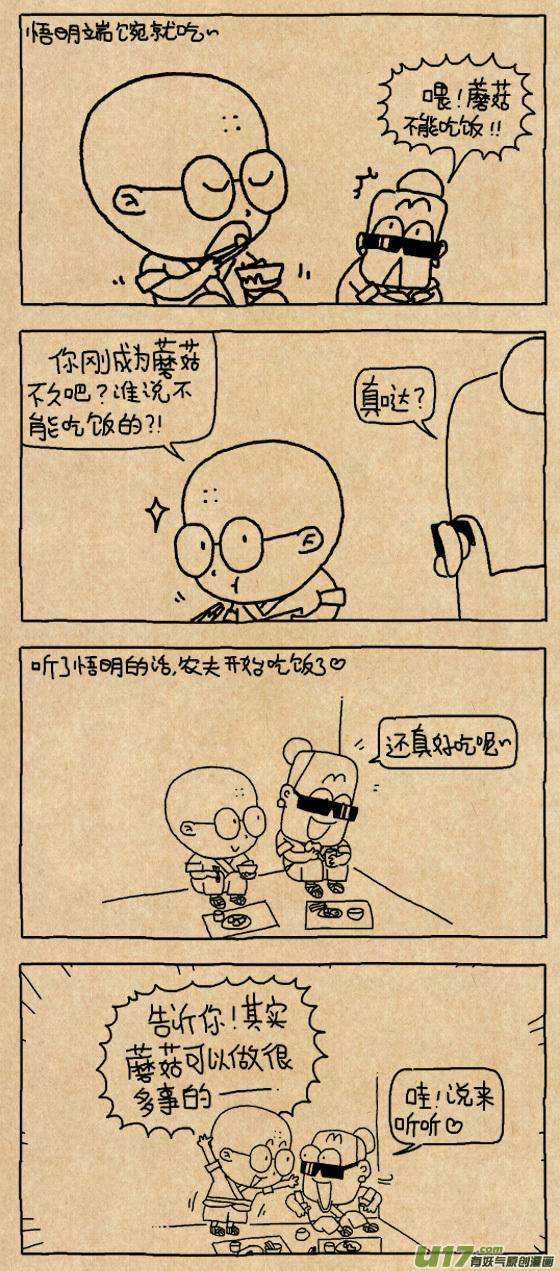 悟明端碗就吃~
喂!蘑菇
不能吃饭!!
你刚成为蘑菇
不久吧?谁说不
能吃饭的?!
真哒?
听了悟明的话,农夫开始吃饭了♡
还真好吃呢~
告诉你!其实
蘑菇可以做很
多事的——
哇!说来
听听♡
U17.com
有妖气原创漫画